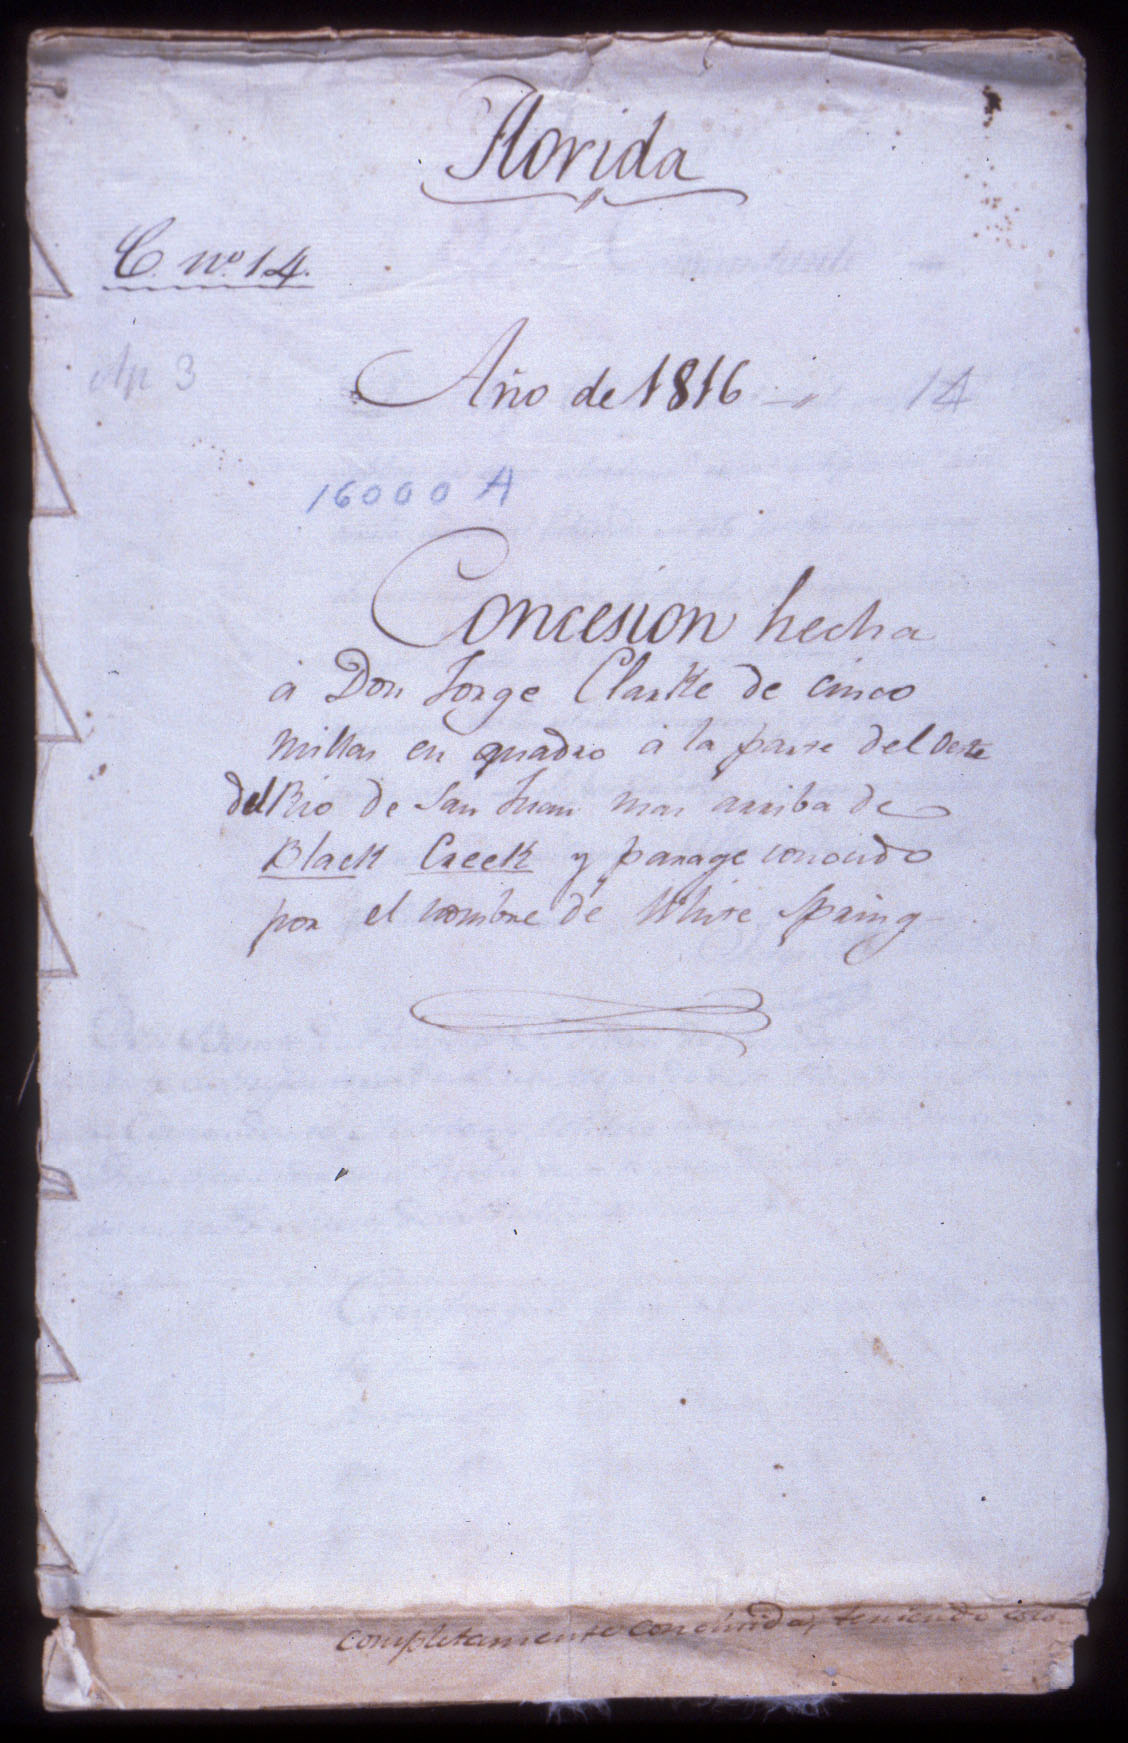 Florida
C. nº 14.
Ap 3
Año de 1816
14
16000 A
Concesion hecha
á Don Jorge Clarke de cinco
millas en quadro á la parte del Oeste
del Rio de San Juan mas arriba de
Black Creek y parage conocido
por el nombre de White Spring
completamente concluida, teniendo